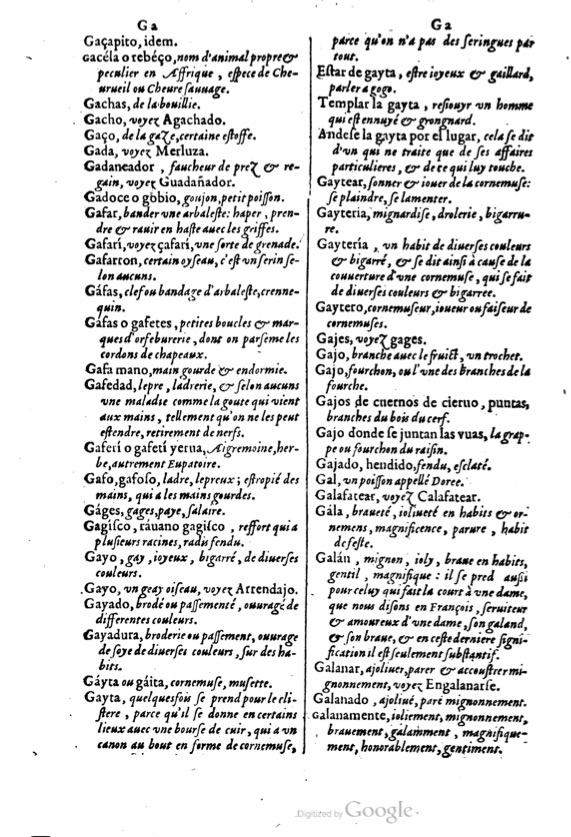 Ga
Gaçapito, idem.
Gacéla o rebéço, nom d'animal propre &
peculier en Affrique, espece de Che-
ureuil ou Cheure sauuage.
Gachas, de la bouillie.
Gacho, voyez Agachado.
Gaço, de la gaze, certaine estoffe.
Gada, voyez Merluza.
Gadaneador, faucheur de prez & re-
gain, voyez Guadañador.
Gadoce o gobio, goujon, petit poisson.
Gafar, bander vne arbaleste: haper, pren-
dre & rauir en haste auec les griffes.
Gafarí, voyez çafarí, vne sorte de grenade.
Gafarron, certain oyseau, c'est vn serin se-
lon aucuns.
Gáfas, clef ou bandage d'arbaleste, crenne-
quin.
Gáfas o gafetes, petites boucles & mar-
ques d'orfeburerie, dont on parseme les
cordons de chapeaux.
Gafa mano, main gourde & endormie.
Gafedad, lepre, ladrerie, & selon aucuns
vne maladie comme la goute qui vient
aux mains, tellement qu'on ne les peut
estendre, retirement de nerfs.
Gaferí o gafetí yerua, Aigremoine, her-
be, autrement Eupatoire.
Gafo, gafoso, ladre, lepreux; estropié des
mains, qui a les mains gourdes.
Gáges, gages, paye, salaire.
Gagisco, ráuano gagisco, reffort qui a
plusieurs racines, radis fendu.
Gayo, gay, ioyeux, bigarré, de diuerses
couleurs.
Gayo, vn geay oiseau, voyez Arrendajo.
Gayado, brodé ou passementé, ouuragé de
differentes couleurs.
Gayadura, broderie ou passement, ouurage
de soye de diuerses couleurs, sur des ha-
bits.
Gáyta ou gáita, cornemuse, musette.
Gayta, quelquesfois se prend pour le cli-
stere, parce qu'il se donne en certains
lieux auec vne bourse de cuir, qui a vn
canon au bout en forme de cornemuse,
Ga
parce qu'on n'a pas des seringues par
tout.
Estar de gayta, estre ioyeux & gaillard,
parler a gogo.
Templar la gayta, resiouyr vn homme
qui est ennuyé & grongnard.
Andese la gayta por el lugar, cela se dit
d'vn qui ne traite que de ses affaires
particulieres, & de ce qui luy touche.
Gaytear, sonner & iouer de la cornemuse:
se plaindre, se lamenter.
Gayteria, mignardise, drolerie, bigarru-
re.
Gaytería, vn habit de diuerses couleurs
& bigarré, & se dit ainsi à cause de la
couuerture d'vne cornemuse, qui se fait
de diuerses couleurs & bigarree.
Gaytero, cornemuseur, ioueur ou faiseur de
cornemuses.
Gajes, voyez gages.
Gajo, branche auec le fruict, vn trochet.
Gajo, fourchon, ou l'vne des branches de la
fourche.
Gajos de cuernos de cieruo, puntas,
branches du bois du cerf.
Gajo donde se juntan las vuas, la grap-
pe ou fourchon du raisin.
Gajado, hendido, fendu, esclaté.
Gal, vn poisson appellé Doree.
Galafatear, voyez Calafatear.
Gála, braueté, ioliueté en habits & or-
nemens, magnificence, parure, habit
de feste.
Galán, mignon, ioly, braue en habits,
gentil, magnifique: il se pred aussi
pour celuy qui fait la court à vne dame,
que nous disons en François, seruiteur
& amoureux d'vne dame, son galand,
& son braue, & en ceste derniere signi-
fication il est seulement substantif.
Galanar, ajoliuer, parer & accoustrer mi-
gnonnement, voyez Engalanarse.
Galanado, ajoliué, paré mignonnement.
Galanamente, ioliement, mignonnement,
brauement, galamment, magnifique-
ment, honorablement, gentiment.
Digitized by Google